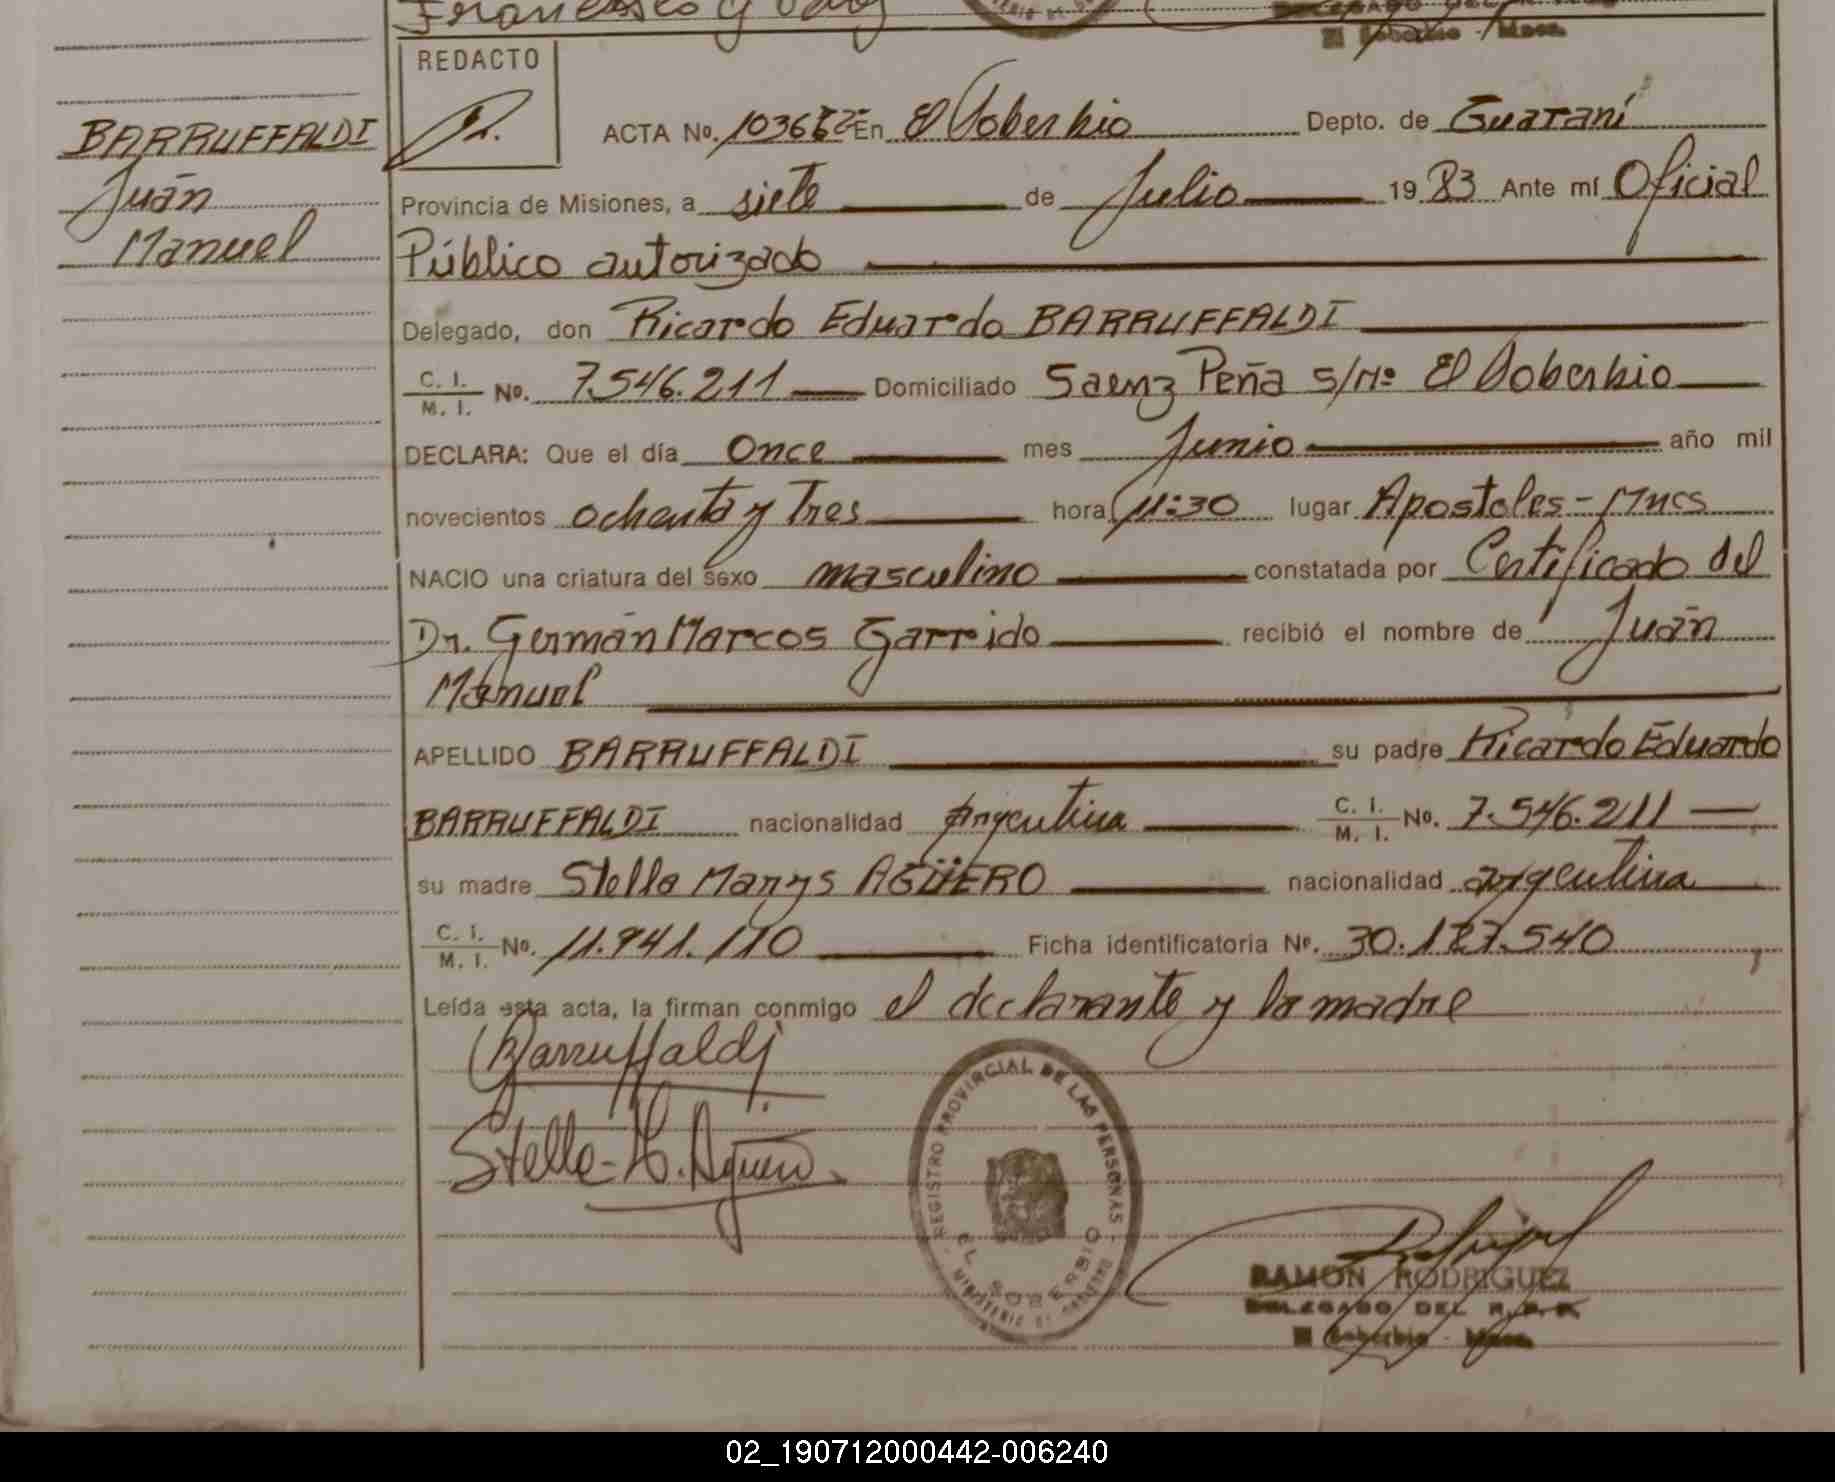 REDACTO
ACTA No. En El Soberbio Depto. de Guaraní
BARRUFFALDI
Juan
Manuel
Provincia de Misiones, a siete de Julio 19 83 Ante mí Oficial
Público autorizado
Delegado, don Ricardo Eduardo BARRUFFALDI
C. I. / M. I. No. 7.546.211 Domiciliado Saenz Peña S/Nº El Soberbio
DECLARA: Que el día Once mes Junio año mil
novecientos ochenta y Tres hora 11:30 lugar Apostoles - Mnes
NACIO una criatura del sexo masculino constatada por Certificado del
Dr. Germán Marcos Garrido recibió el nombre de Juan
Manuel
APELLIDO BARRUFFALDI su padre Ricardo Eduardo
BARRUFFALDI nacionalidad argentina C. I. / M. I. No. 7.546.211
su madre Stella Marys AGÜERO nacionalidad argentina
C. I. / M. I. No. 11.941.110 Ficha identificatoria Nº. 30.127.540
Leída esta acta, la firman conmigo el declarante y la madre
Barruffaldi
Stella M. Agüero
REGISTRO PROVINCIAL DE LAS PERSONAS
EL SOBERBIO
MINISTERIO DE GOBIERNO
RAMON RODRIGUEZ
DELEGADO DEL R. P. P.
El Soberbio - Mnes.
02_190712000442-006240